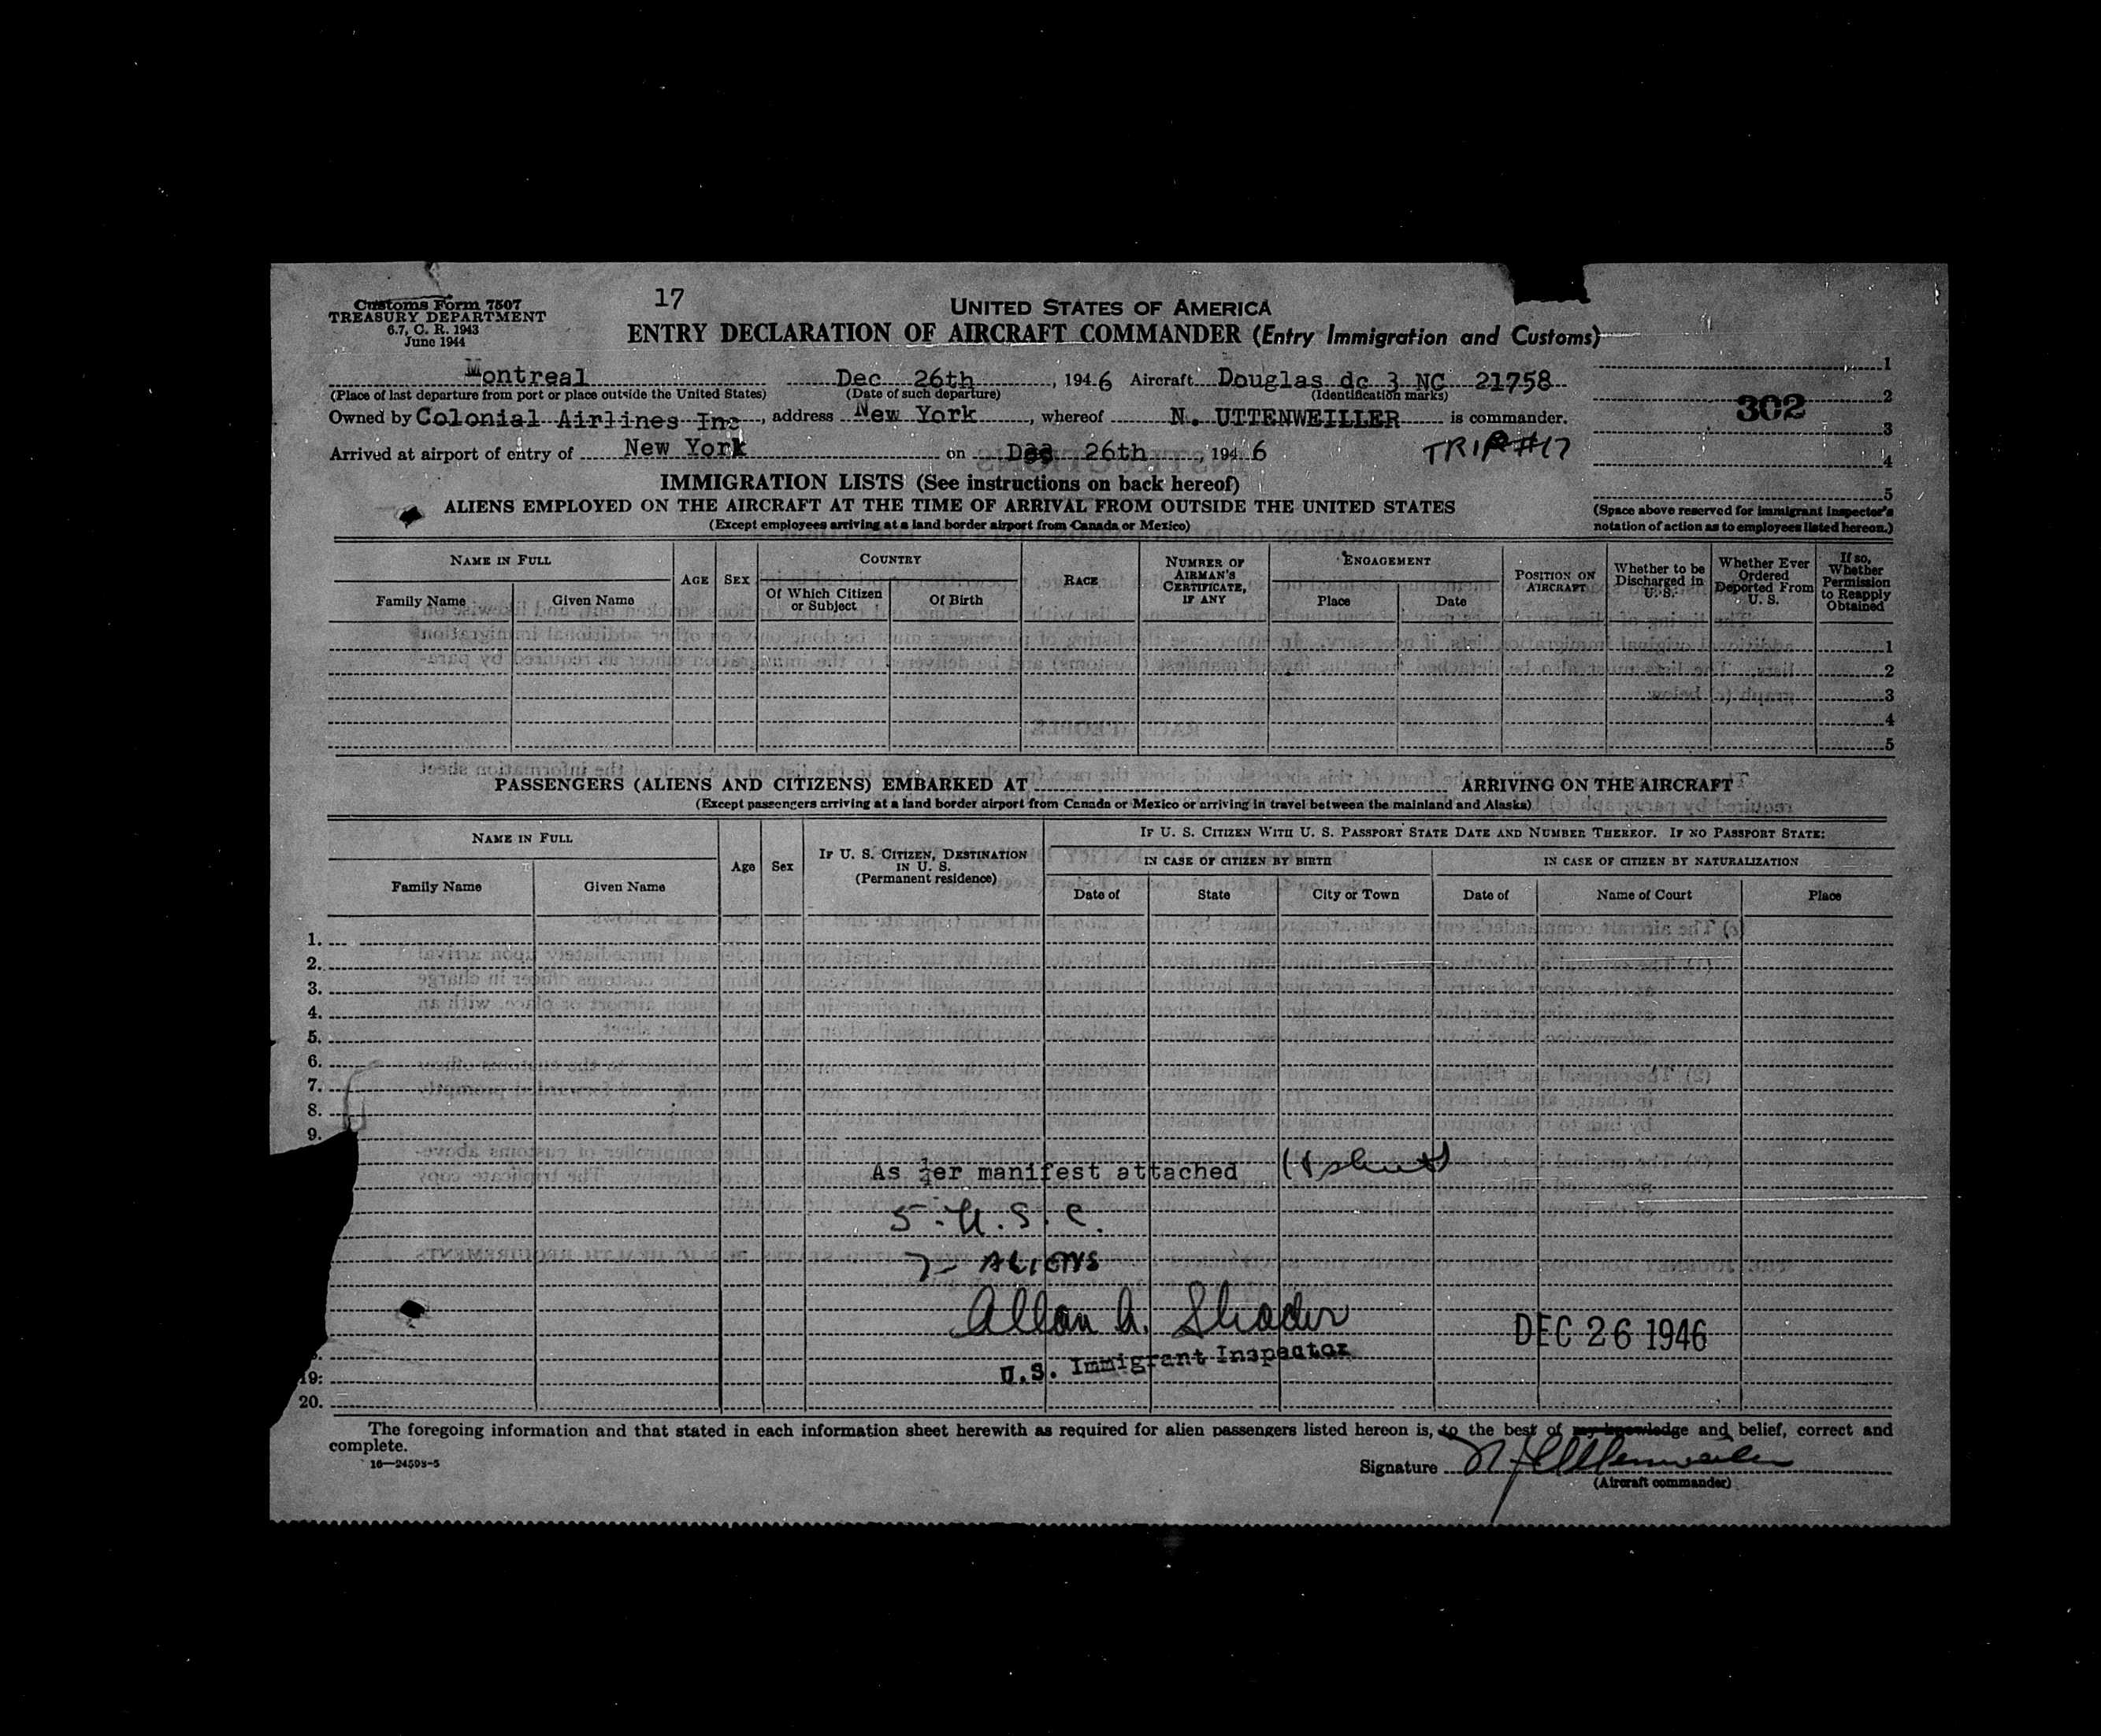 Customs Form 7507
TREASURY DEPARTMENT
6.7, C. R. 1943
June 1944
17
UNITED STATES OF AMERICA
ENTRY DECLARATION OF AIRCRAFT COMMANDER (Entry Immigration and Customs)
Montreal Dec 26th, 1946 Aircraft Douglas dc 3 NC 21758
(Place of last departure from port or place outside the United States) (Date of such departure) (Identification marks)
Owned by Colonial Airlines Inc, address New York, whereof N. UTTENWEILLER is commander.
Arrived at airport of entry of New York on Dec 26th, 1946
TRIP #17
1
2
302
3
4
5
(Space above reserved for immigrant inspector's notation of action as to employees listed hereon.)
IMMIGRATION LISTS (See instructions on back hereof)
ALIENS EMPLOYED ON THE AIRCRAFT AT THE TIME OF ARRIVAL FROM OUTSIDE THE UNITED STATES
(Except employees arriving at a land border airport from Canada or Mexico)
NAME IN FULL
Family Name
Given Name
AGE
SEX
COUNTRY
Of Which Citizen or Subject
Of Birth
RACE
NUMBER OF AIRMAN'S CERTIFICATE, IF ANY
ENGAGEMENT
Place
Date
POSITION ON AIRCRAFT
Whether to be Discharged in U. S.
Whether Ever Ordered Deported From U. S.
If so, Whether Permission to Reapply Obtained
1
2
3
4
5
PASSENGERS (ALIENS AND CITIZENS) EMBARKED AT ARRIVING ON THE AIRCRAFT
(Except passengers arriving at a land border airport from Canada or Mexico or arriving in travel between the mainland and Alaska)
NAME IN FULL
Family Name
Given Name
Age
Sex
IF U. S. CITIZEN, DESTINATION IN U. S.
(Permanent residence)
IF U. S. CITIZEN WITH U. S. PASSPORT STATE DATE AND NUMBER THEREOF. IF NO PASSPORT STATE:
IN CASE OF CITIZEN BY BIRTH
Date of
State
City or Town
IN CASE OF CITIZEN BY NATURALIZATION
Date of
Name of Court
Place
1.
2.
3.
4.
5.
6.
7.
8.
9.
As ¼er manifest attached
5-U.S.C.
7- ALIENS
Allan A. Shader
U.S. Immigrant Inspector
DEC 26 1946
19.
20.
The foregoing information and that stated in each information sheet herewith as required for alien passengers listed hereon is, to the best of my knowledge and belief, correct and
complete.
16—24593-5
Signature N. Uttenweiler
(Aircraft commander)